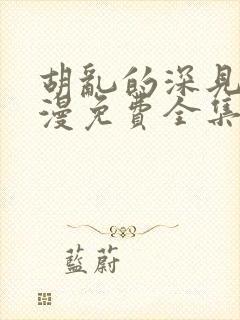 胡亂的深見
漫免費全集
藍蔚